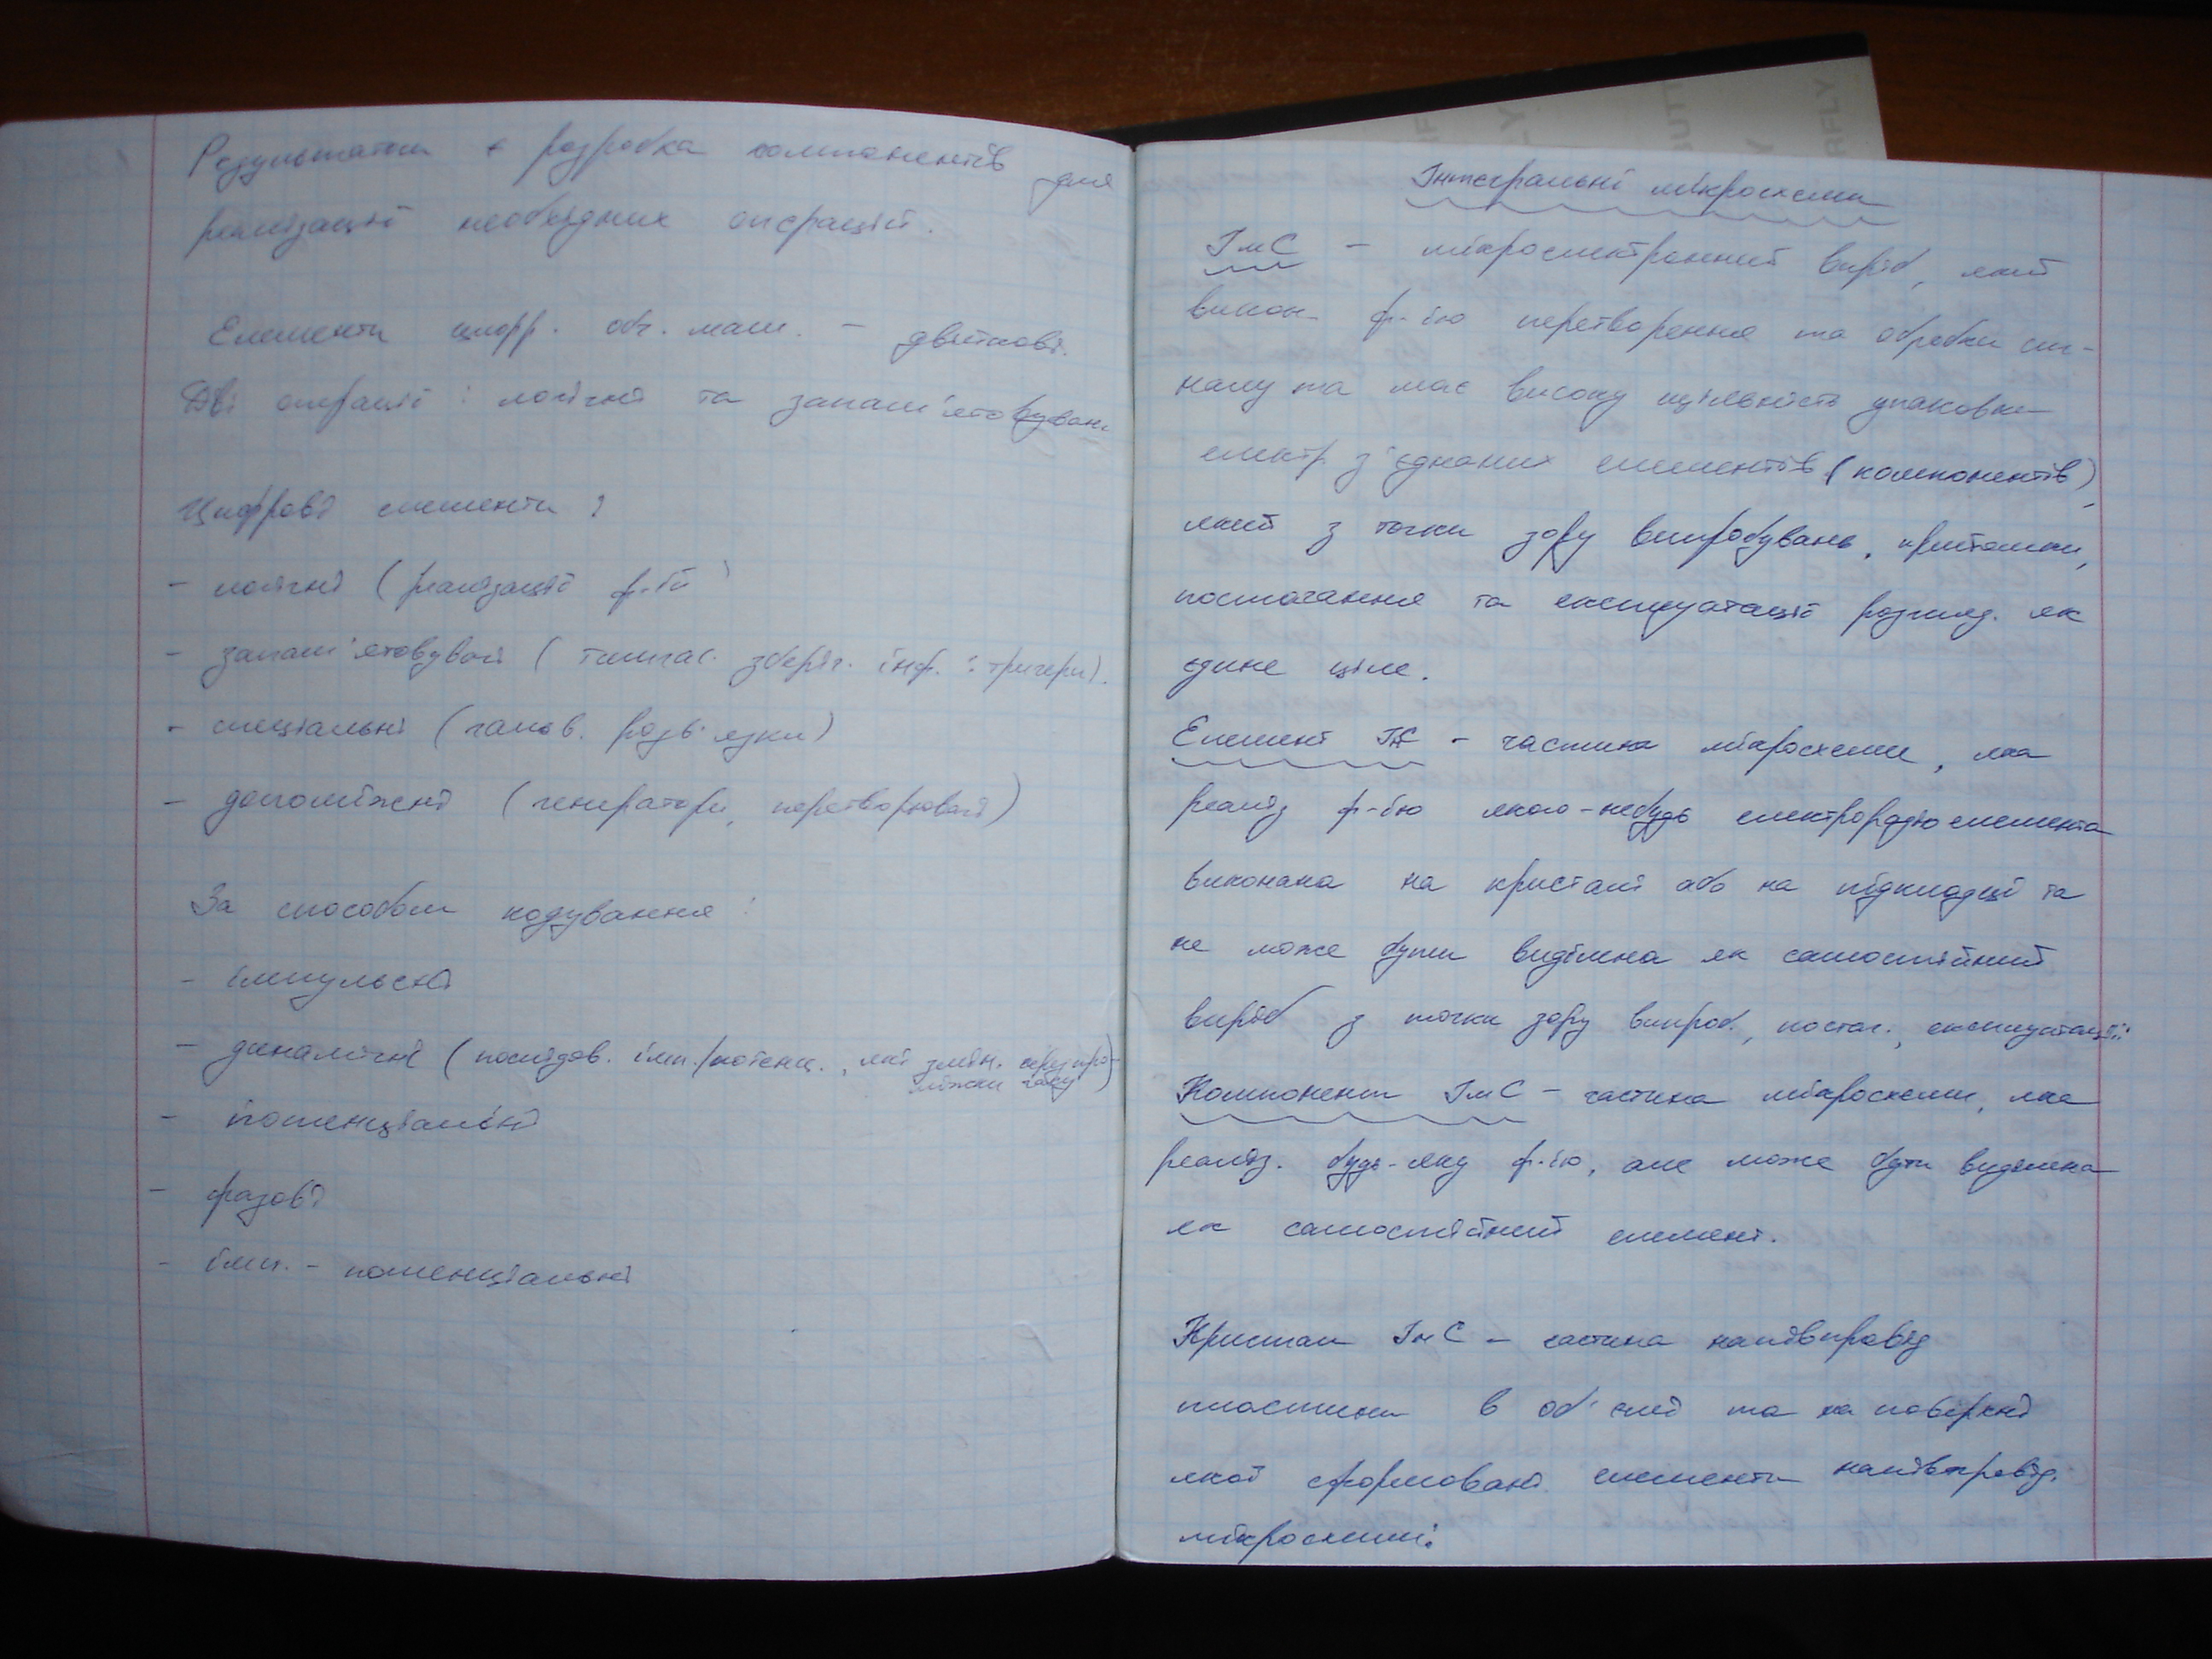 Результатом є розробка компонентів для
реалізації необхідних операцій.
Елементи цифр. обч. маш. – двійкові.
Дві операції : логічні та запам'ятовуван.
Цифрові елементи :
- логічні (реалізації ф-ій)
- запам'ятовувачі (тимчас. зберіг. інф. : тригери).
- спеціальні (гальв. розв'язки)
- допоміжні (генератори, перетворювачі)
За способом кодування :
- імпульсні
- динамічні (послідов. імп./потенц., які змін. через про-
міжки часу)
- потенціальні
- фазові
- імп. - потенціальні
Інтегральні мікросхеми
ІмС – мікроелектронний виріб, який
викон. ф-ію перетворення та обробки сиг-
налу та має високу щільність упаковки
електр. з'єднаних елементів (компонентів),
який з точки зору випробувань, прийомки,
постачання та експлуатації розгляд. як
єдине ціле.
Елемент ІС – частина мікросхеми, яка
реаліз ф-ію якого-небудь електрорадіоелемента
виконана на кристалі або на підкладці та
не може бути виділена як самостійний
виріб з точки зору випроб., постач., експлуатації.
Компонент ІмС – частина мікросхеми, яка
реаліз. будь-яку ф-ію, але може бути виділена
як самостійний елемент.
Кристал ІмС – частина напівпровід
пластини в об'ємі та на поверхні
якої сформовані елементи напівпровід.
мікросхеми.
RFLY